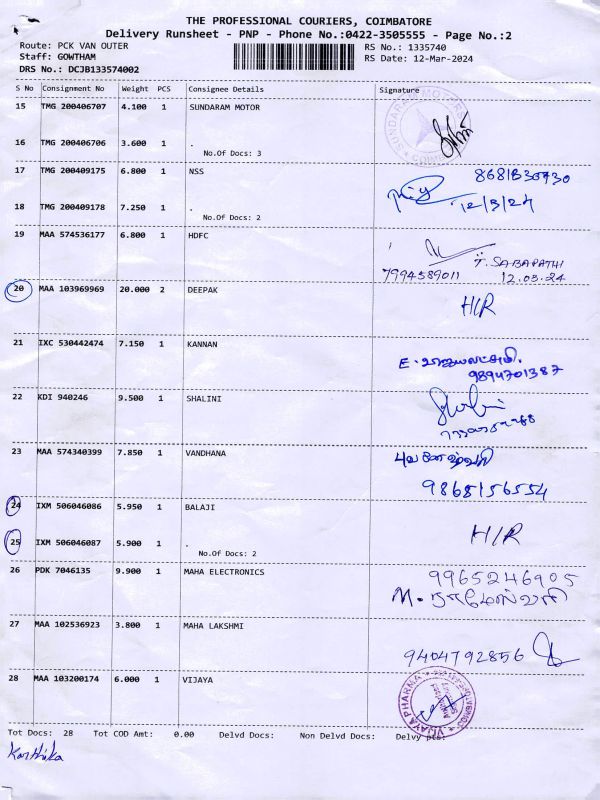 THE PROFESSIONAL COURIERS, COIMBATORE
Delivery Runsheet - PNP - Phone No.:0422-3505555 - Page No.:2
Route: PCK VAN OUTER
RS No.: 1335740
Staff: GOWTHAM
RS Date: 12-Mar-2024
DRS No.: DCJB133574002
S No Consignment No Weight PCS Consignee Details Signature
15 TMG 200406707 4.100 1 SUNDARAM MOTOR
SUNDARAM MOTORS
16 TMG 200406706 3.600 1 .
No.Of Docs: 3
17 TMG 200409175 6.800 1 NSS
12/3/24
18 TMG 200409178 7.250 1 .
No.Of Docs: 2
19 MAA 574536177 6.800 1 HDFC
T. SABAPATHI
7994589011 12.03.24
20 MAA 103969969 20.000 2 DEEPAK
H/R
21 IXC 530442474 7.150 1 KANNAN
9894701387
22 KDI 940246 9.500 1 SHALINI
23 MAA 574340399 7.850 1 VANDHANA
9868156554
24 IXM 506046086 5.950 1 BALAJI
H/R
25 IXM 506046087 5.900 1 .
No.Of Docs: 2
26 PDK 7046135 9.900 1 MAHA ELECTRONICS
9965246905
27 MAA 102536923 3.800 1 MAHA LAKSHMI
9404792856
28 MAA 103200174 6.000 1 VIJAYA
VIJAYA PHARMA
Tot Docs: 28 Tot COD Amt: 0.00 Delvd Docs: Non Delvd Docs: Delvy pts:
Karthika